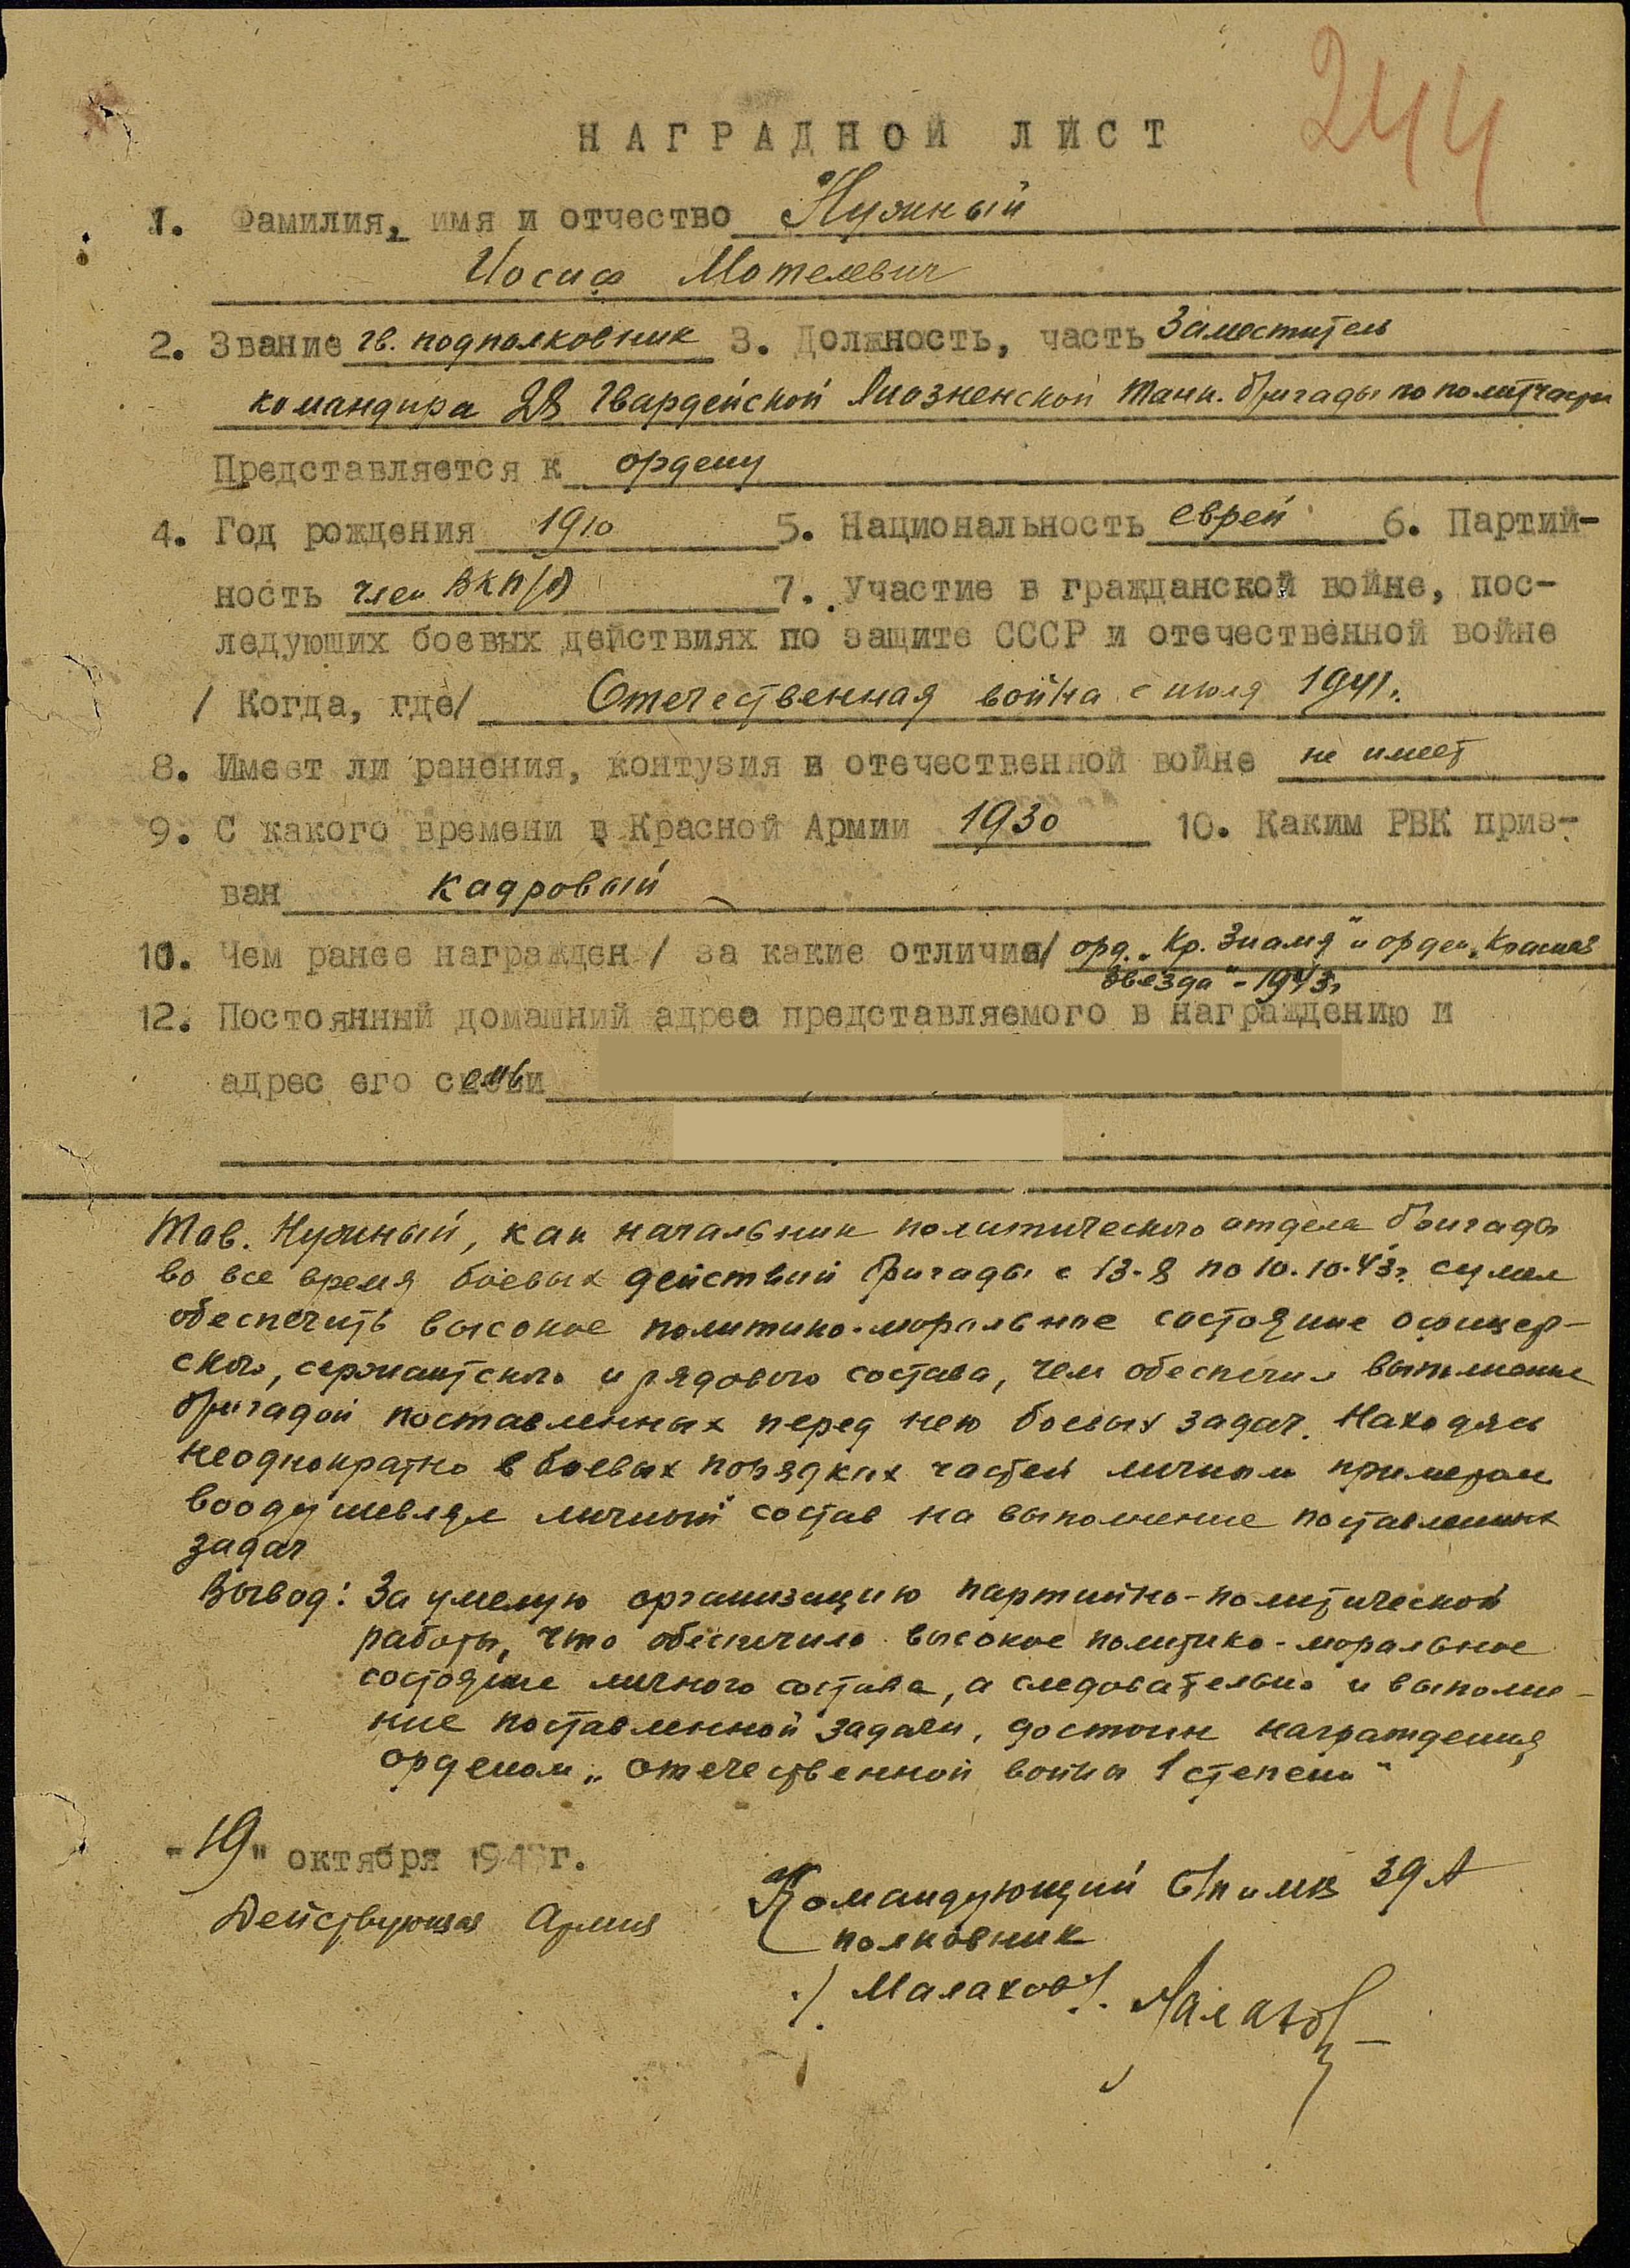 244
НАГРАДНОЙ ЛИСТ
1. Фамилия, имя и отчество Нужный
Иосиф Мотелевич
2. Звание гв. подполковник 3. Должность, часть Заместитель
командира 28 Гвардейской Лиозненской Танк. бригады по политчасти
Представляется к ордену
4. Год рождения 1910 5. Национальность еврей 6. Партий-
ность член ВКП/б/ 7. Участие в гражданской войне, пос-
ледующих боевых действиях по защите СССР и отечественной войне
/ Когда, где/ Отечественная война с июля 1941.
8. Имеет ли ранения, контузия в отечественной войне не имеет
9. С какого времени в Красной Армии 1930 10. Каким РВК приз-
ван кадровый
10. Чем ранее награжден / за какие отличия/ орд. „Кр. Знамя" и орден „Красная
звезда" - 1943г
12. Постоянный домашний адреса представляемого в награждению и
адрес его семьи
Тов. Нужный, как начальник политического отдела бригады
во все время боевых действий бригады с 13.8 по 10.10.43г. сумел
обеспечить высокое политико-моральное состояние офицер-
ского, сержантского и рядового состава, чем обеспечил выполнение
бригадой поставленных перед нею боевых задач. Находясь
неоднократно в боевых порядках частей личным примером
воодушевлял личный состав на выполнение поставленных
задач
Вывод: За умелую организацию партийно-политической
работы, что обеспечило высокое политико-моральное
состояние личного состава, а следовательно и выполне-
ние поставленной задачи, достоин награждения
орденом „отечественной войны 1 степени"
"19" октября 1943г.
Действующая Армия
Командующий БТ и МВ 39 А
полковник
/Малахов/. Малахов